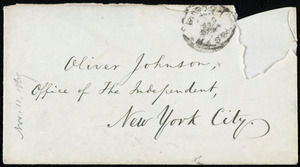 Oliver Johnson,
Office of The Independent,
New York City.